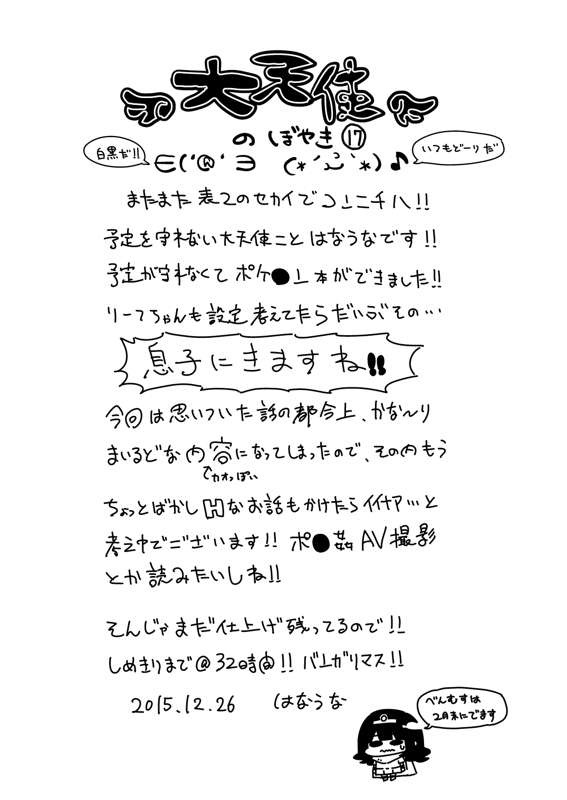 大天使
のぼやき⑰
白黒だ!!
∈('@'∋ (*´ω`*)♪
いつもどーりだ
またまた表2のセカイでコンニチハ!!
予定を守れない大天使ことはなうなです!!
予定が守れなくてポケ●ン本ができました!!
リーフちゃんも設定考えてたらだいぶその…
息子にきますね!!
今回は思いついた話の都合上、かな〜り
まいるどな内容になってしまったので、その内もう
↑カオっぽい
ちょっとばかしHなお話もかけたらイイナァ…と
考え中でございます!! ポ●姦AV撮影
とか読みたいしね!!
そんじゃまだ仕上げ残ってるので!!
しめきりまで@32時間!! バンガリマス!!
2015.12.26 はなうな
べんむすは
2月末にでます